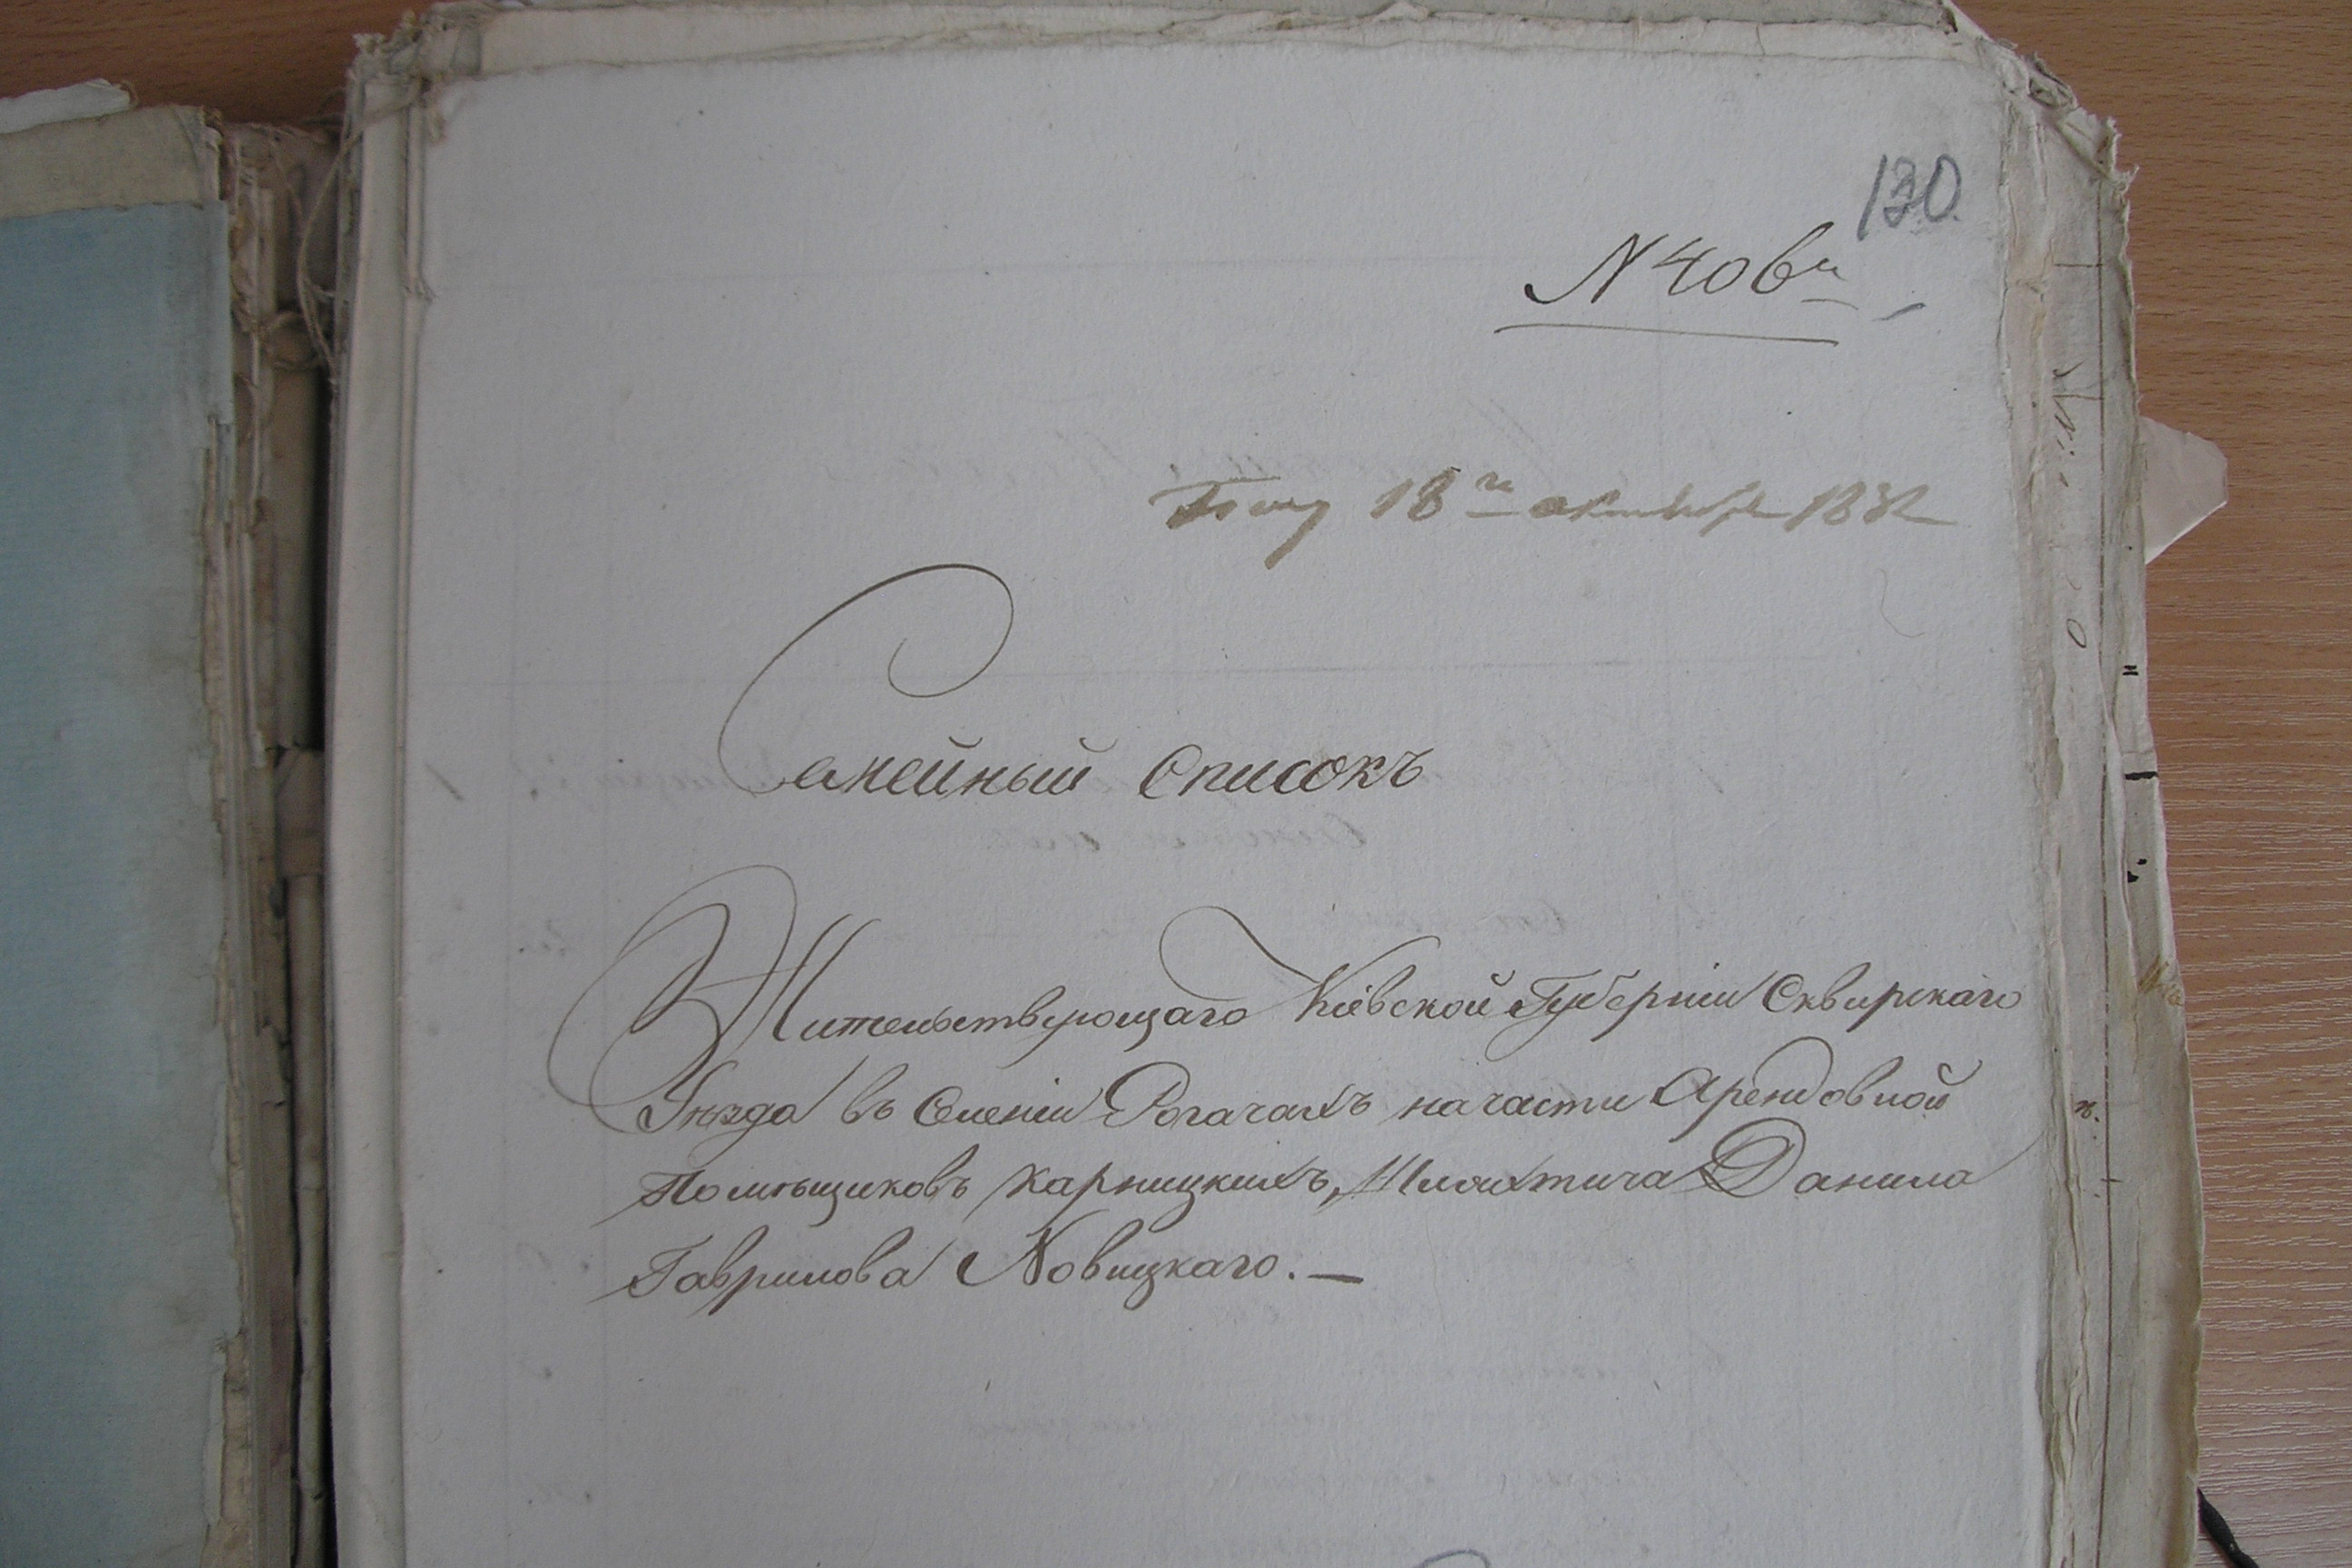 130
N 406й
18го октября 1832
Семейный Списокъ
Жительствующаго Кіевской Губерніи Сквирскаго
Уѣзда въ Селеніи Рогачахъ на части Арендовной
Помѣщиковъ Карницкихъ, Шляхтича Данила
Гаврилова Новицкаго. —